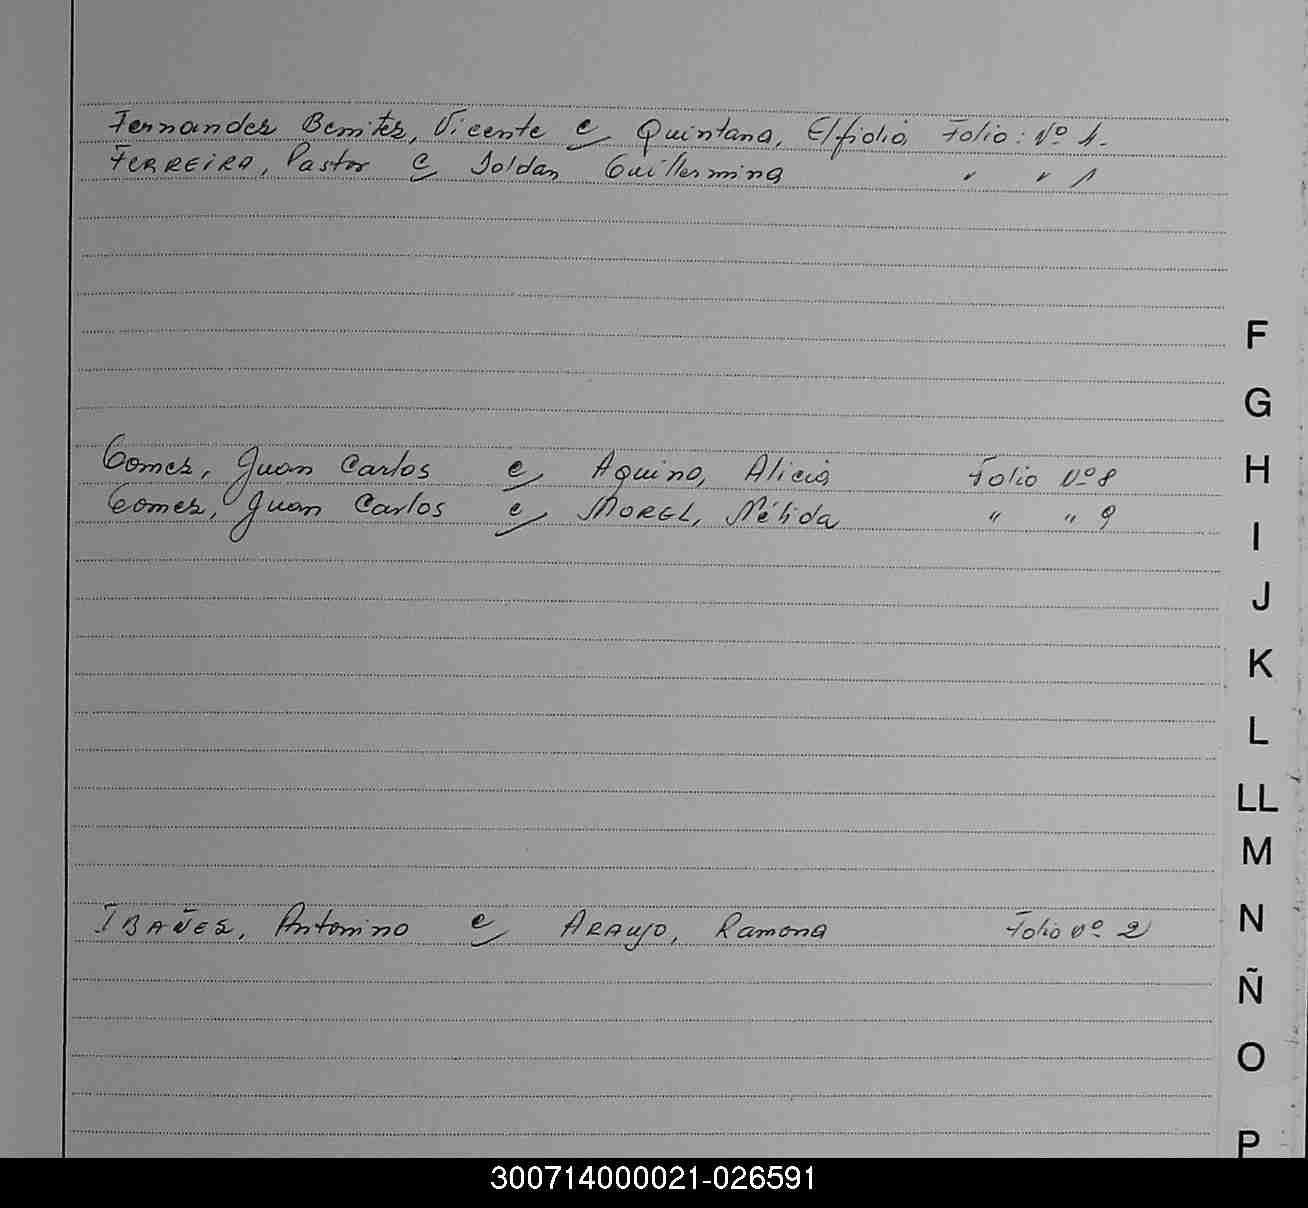 Fernandez Benitez, Vicente c/ Quintana, Elfidia Folio: Nº 1.
FERREIRA, Pastor c/ Soldan Guillermina " " 1
F
G
Gomez, Juan Carlos c/ Aquino, Alicia Folio Nº 8
H
Gomez, Juan Carlos c/ MOREL, Nélida " " 9
I
J
K
L
LL
M
IBAÑEZ, Antonino c/ ARAUJO, Ramona Folio Nº 2
N
Ñ
O
P
300714000021-026591